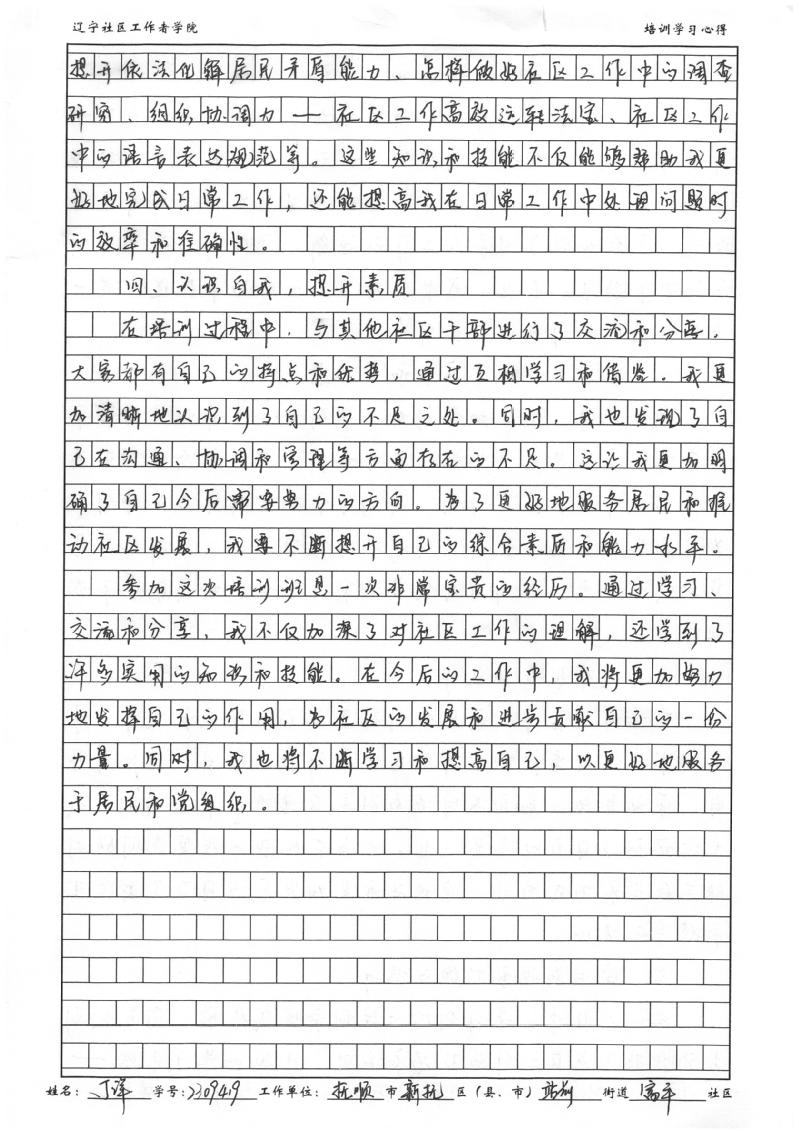 辽宁社区工作者学院 培训学习心得
提升依法化解居民矛盾能力、怎样做好社区工作中的调查
研究、组织协调力——社区工作高效运转法宝、社区工作
中的语言表达规范等。这些知识和技能不仅能够帮助我更
好地完成日常工作，还能提高我在日常工作中处理问题时
的效率和准确性。
四、认识自我，提升素质
在培训过程中，与其他社区干部进行了交流和分享。
大家都有自己的特点和优势，通过互相学习和借鉴。我更
加清晰地认识到了自己的不足之处。同时，我也发现了自
己在沟通、协调和管理等方面存在的不足。这让我更加明
确了自己今后需要努力的方向。为了更好地服务居民和推
动社区发展，我要不断提升自己的综合素质和能力水平。
参加这次培训班是一次非常宝贵的经历。通过学习、
交流和分享，我不仅加深了对社区工作的理解，还学到了
许多实用的知识和技能。在今后的工作中，我将更加努力
地发挥自己的作用，为社区的发展和进步贡献自己的一份
力量。同时，我也将不断学习和提高自己，以更好地服务
于居民和党组织。
姓名：丁洋 学号：2309419 工作单位：抚顺市新抚区（县、市）站前街道富平社区